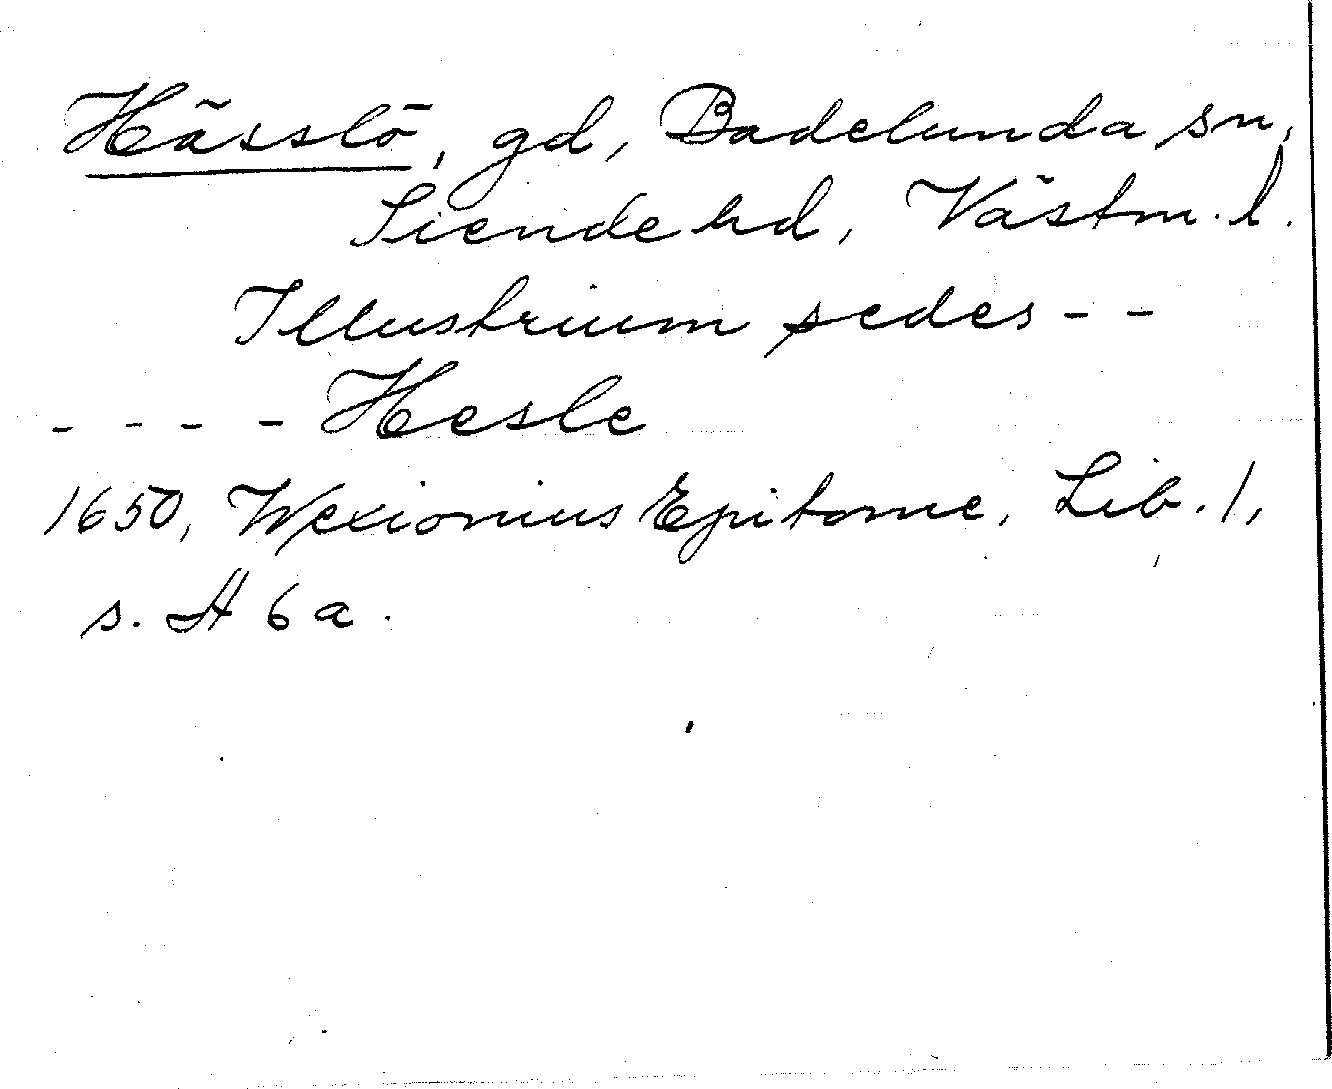 Hässlö, gd, Badelunda sn,
Siende hd, Västm. l.
Illustrium sedes - -
- - - - Hesle
1650, Wexionius Epitome, Lib. 1,
s. A 6 a.